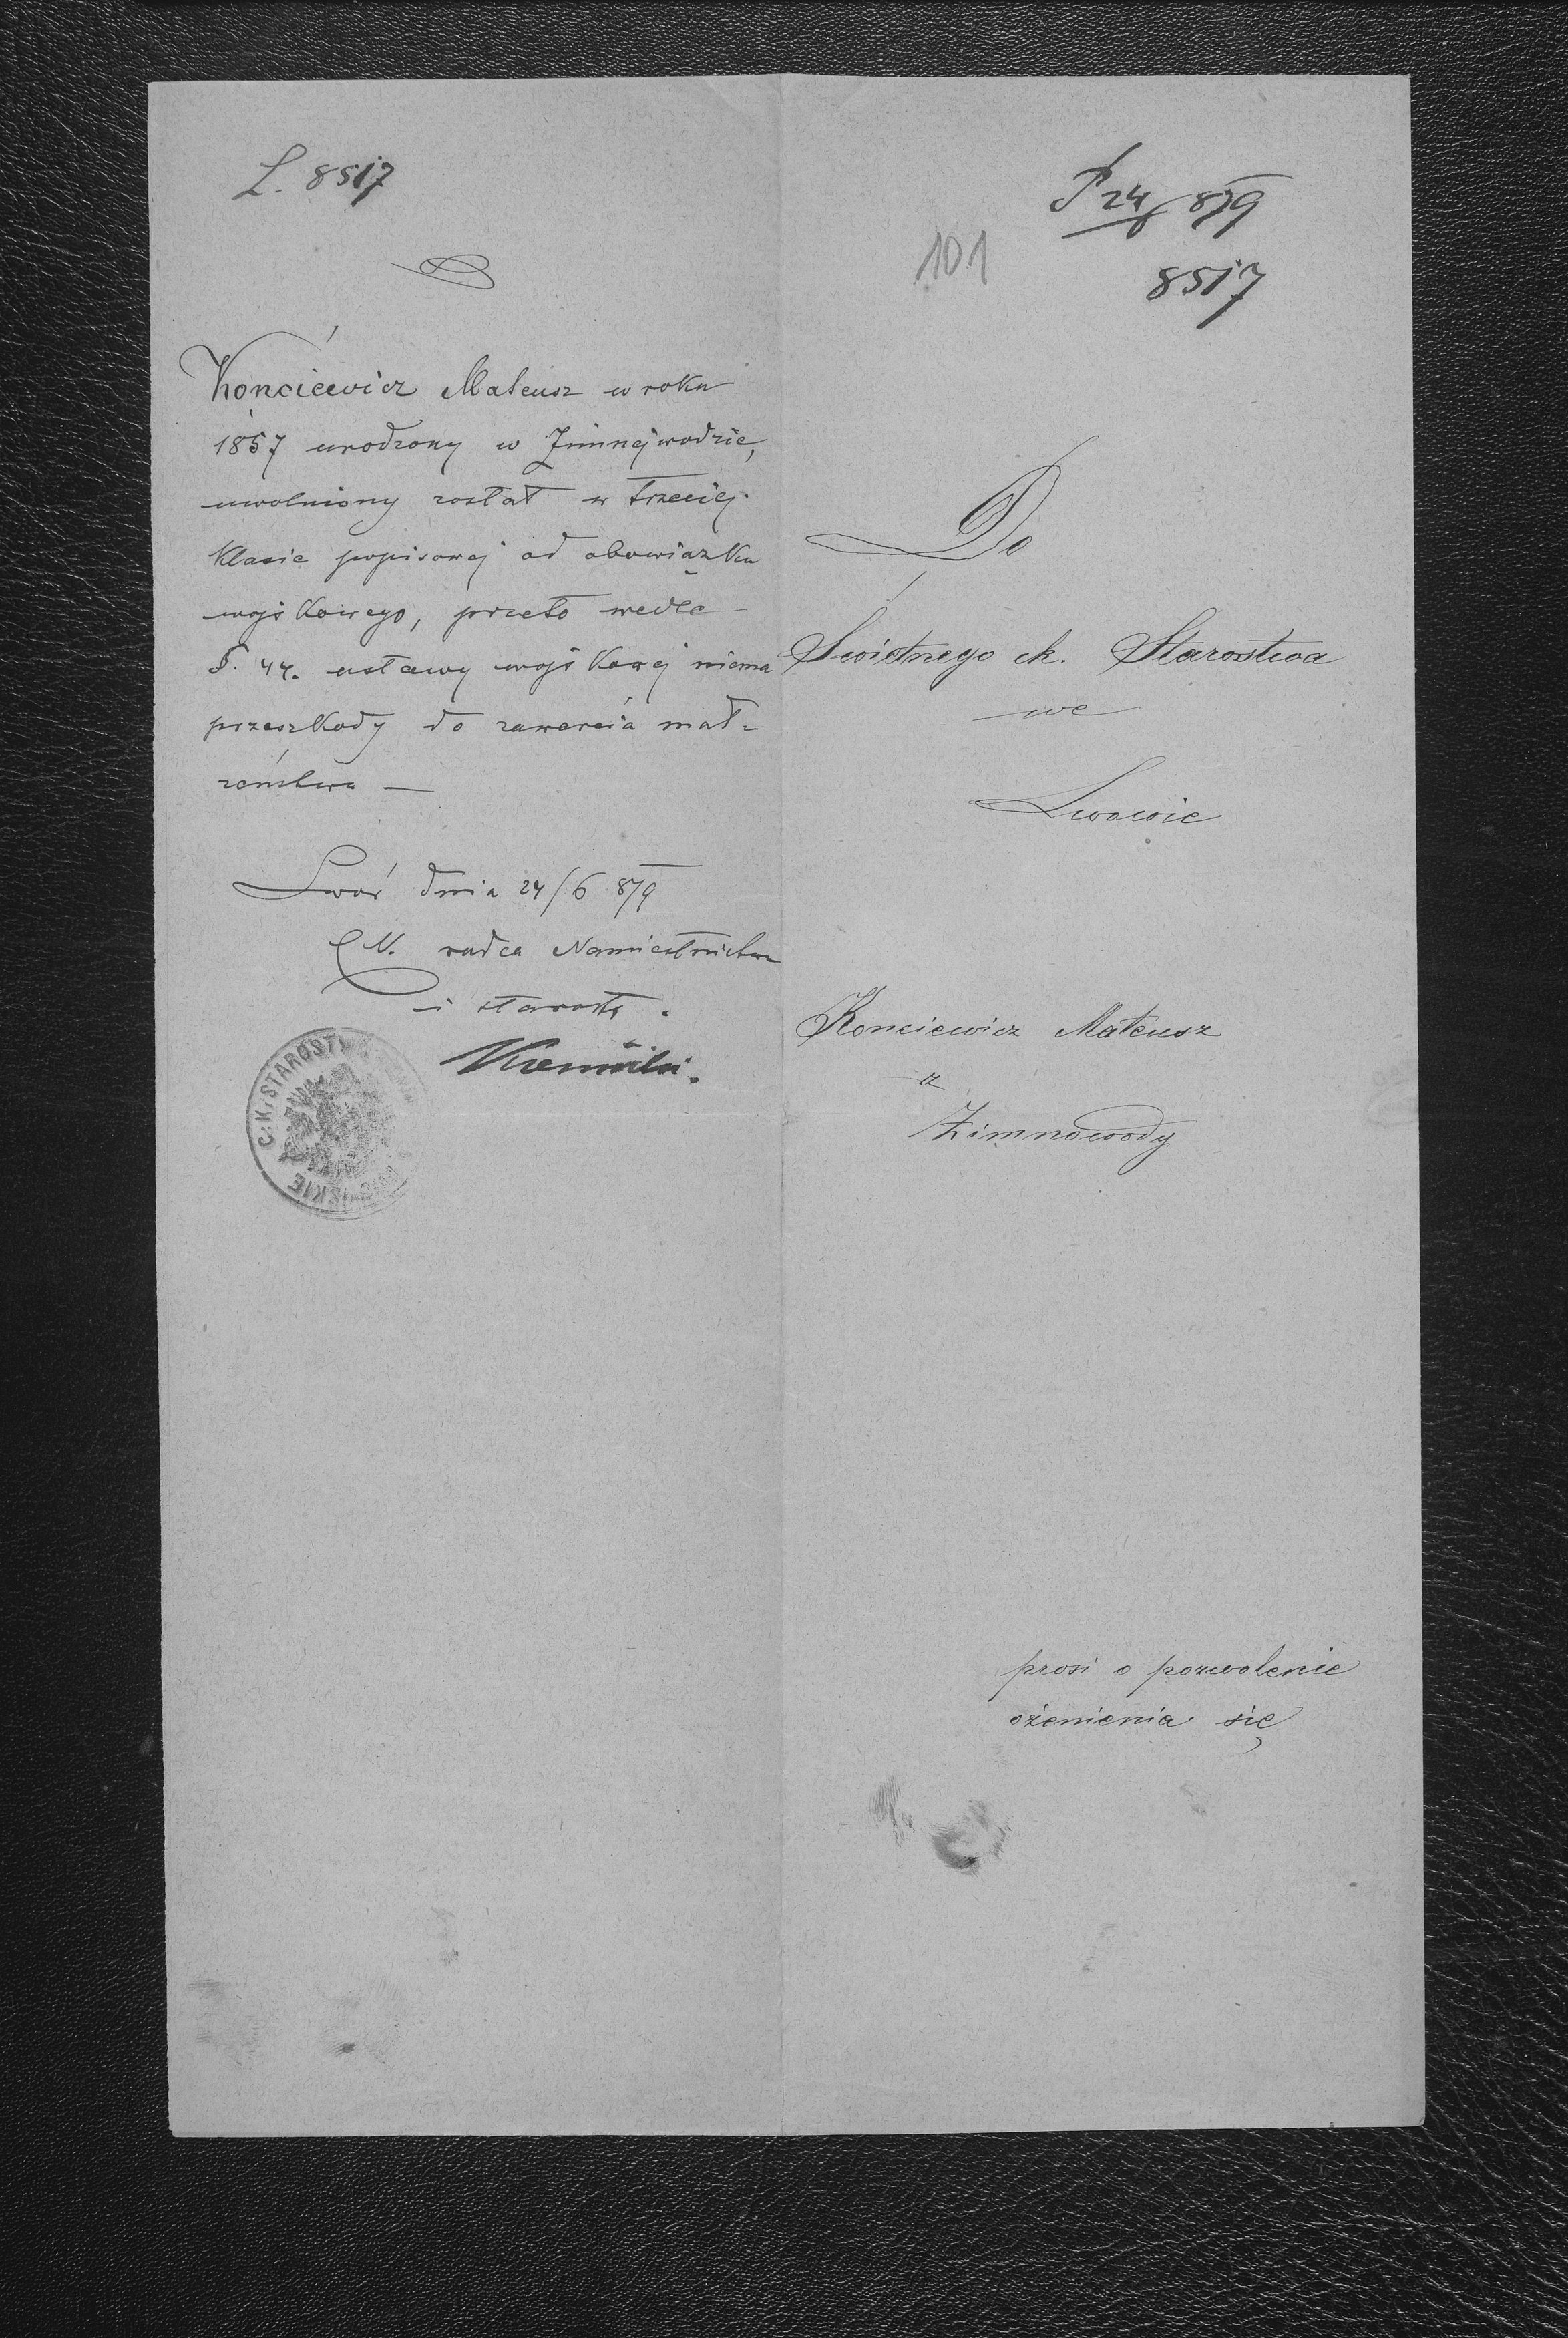 L. 8517
Konciewicz Mateusz w roku
1857 urodzony w Zimnejwodzie,
uwolniony został w trzeciej
klasie popisowej od obowiązku
wojskowego, przeto wedle
§. 44. ustawy wojskowej niema
przeszkody do zawarcia mał-
żeństwa —
Lwów dnia 24/6 879
radca Namiestnictwa
i starosta.
C: K: STAROSTWO
101
P 24/6 879
8517
Do
Świetnego ck. Starostwa
we
Lwowie
Konciewicz Mateusz
z
Zimnowody
prosi o pozwolenie
ożenienia się